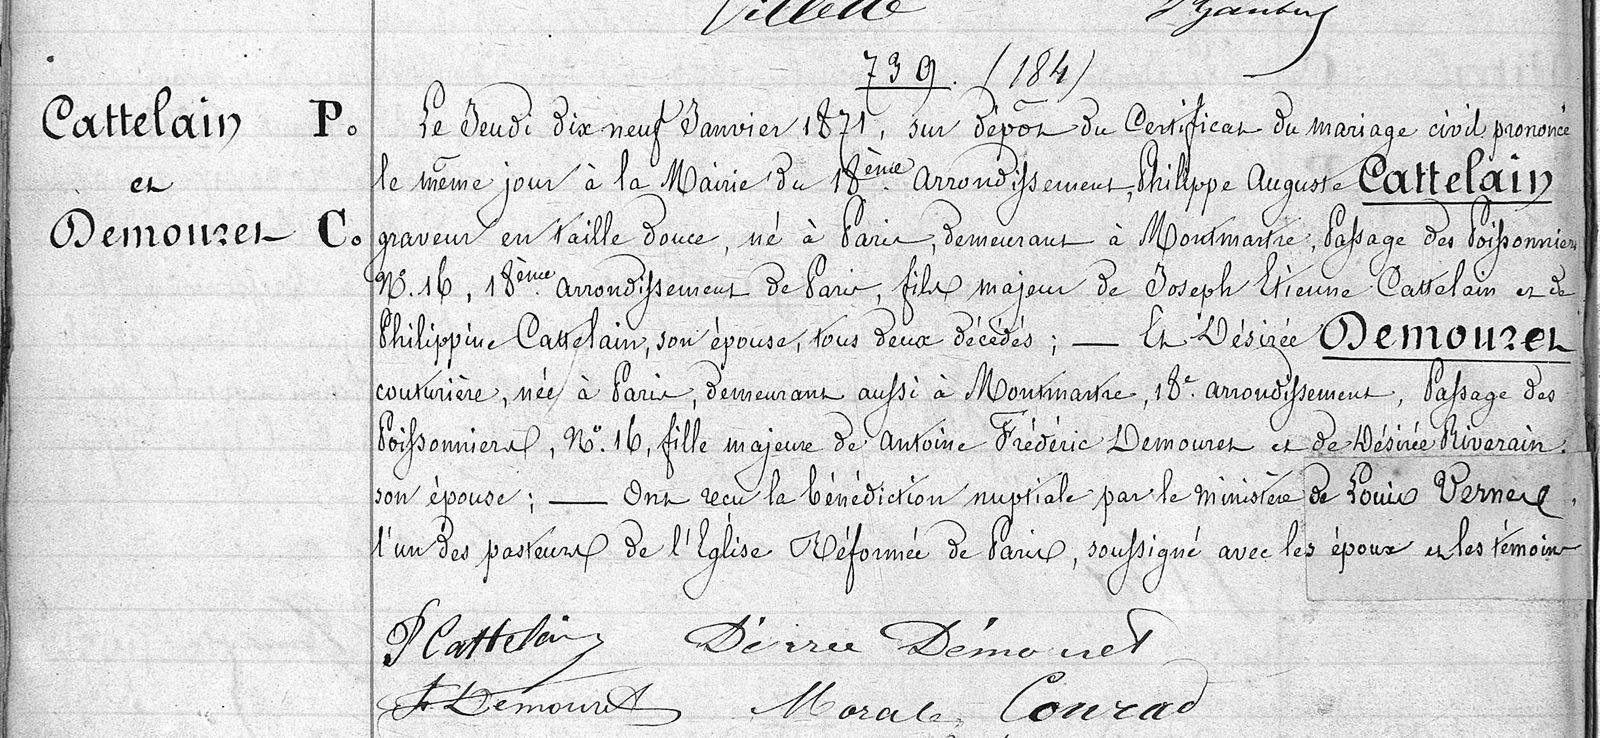 Villette
739. (184)
Cattelain P.
et
Demouret C.
Le Jeudi dix neuf Janvier 1871, sur dépôt du Certificat du mariage civil prononcé
le même jour à la Mairie du 18ème Arrondissement, Philippe Auguste Cattelain
graveur en taille douce, né à Paris, demeurant à Montmartre, Passage des Poissonniers
No. 16, 18ème Arrondissement de Paris, fils majeur de Joseph Etienne Cattelain et de
Philippine Cattelain, son épouse, tous deux décédés ; — Et Désirée Demouret
couturière, née à Paris, demeurant aussi à Montmartre, 18e. arrondissement, Passage des
Poissonniers, No. 16, fille majeure de Antoine Frédéric Demouret et de Désirée Riverain.
son épouse ; — Ont reçu la bénédiction nuptiale par le ministère de Louis Vernes,
l'un des pasteurs de l'Eglise Réformée de Paris, soussigné avec les époux et les témoins
P Cattelain Désirée Démouret
Demouret Conrad